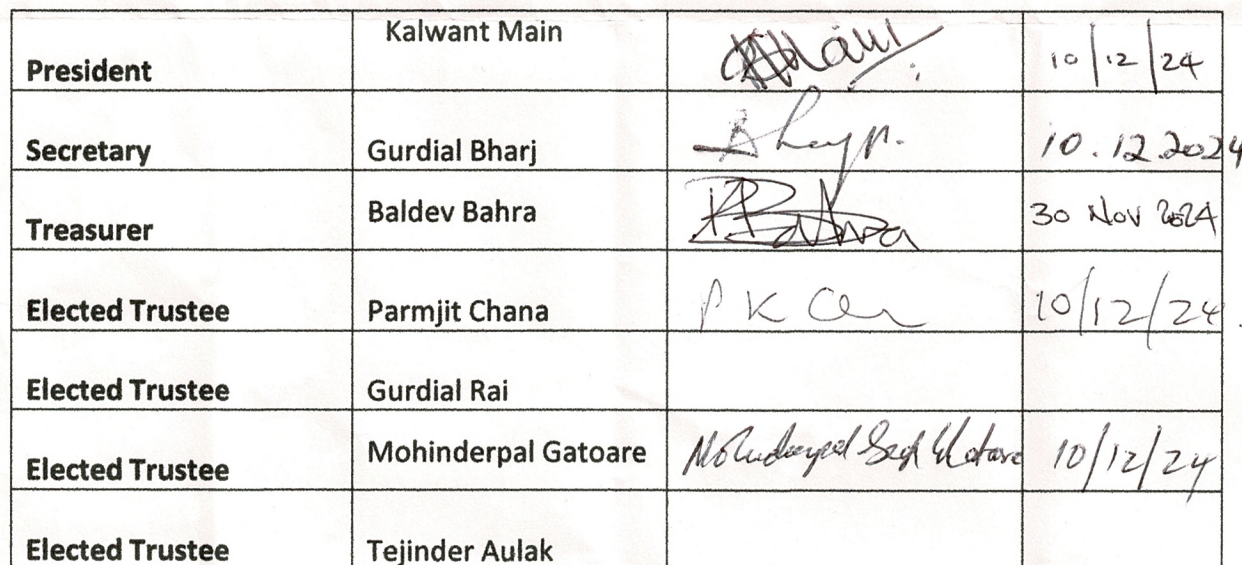 President Kalwant Main 10/12/24
Secretary Gurdial Bharj 10.12.2024
Treasurer Baldev Bahra 30 Nov 2024
Elected Trustee Parmjit Chana P K 10/12/24
Elected Trustee Gurdial Rai
Elected Trustee Mohinderpal Gatoare 10/12/24
Elected Trustee Tejinder Aulak